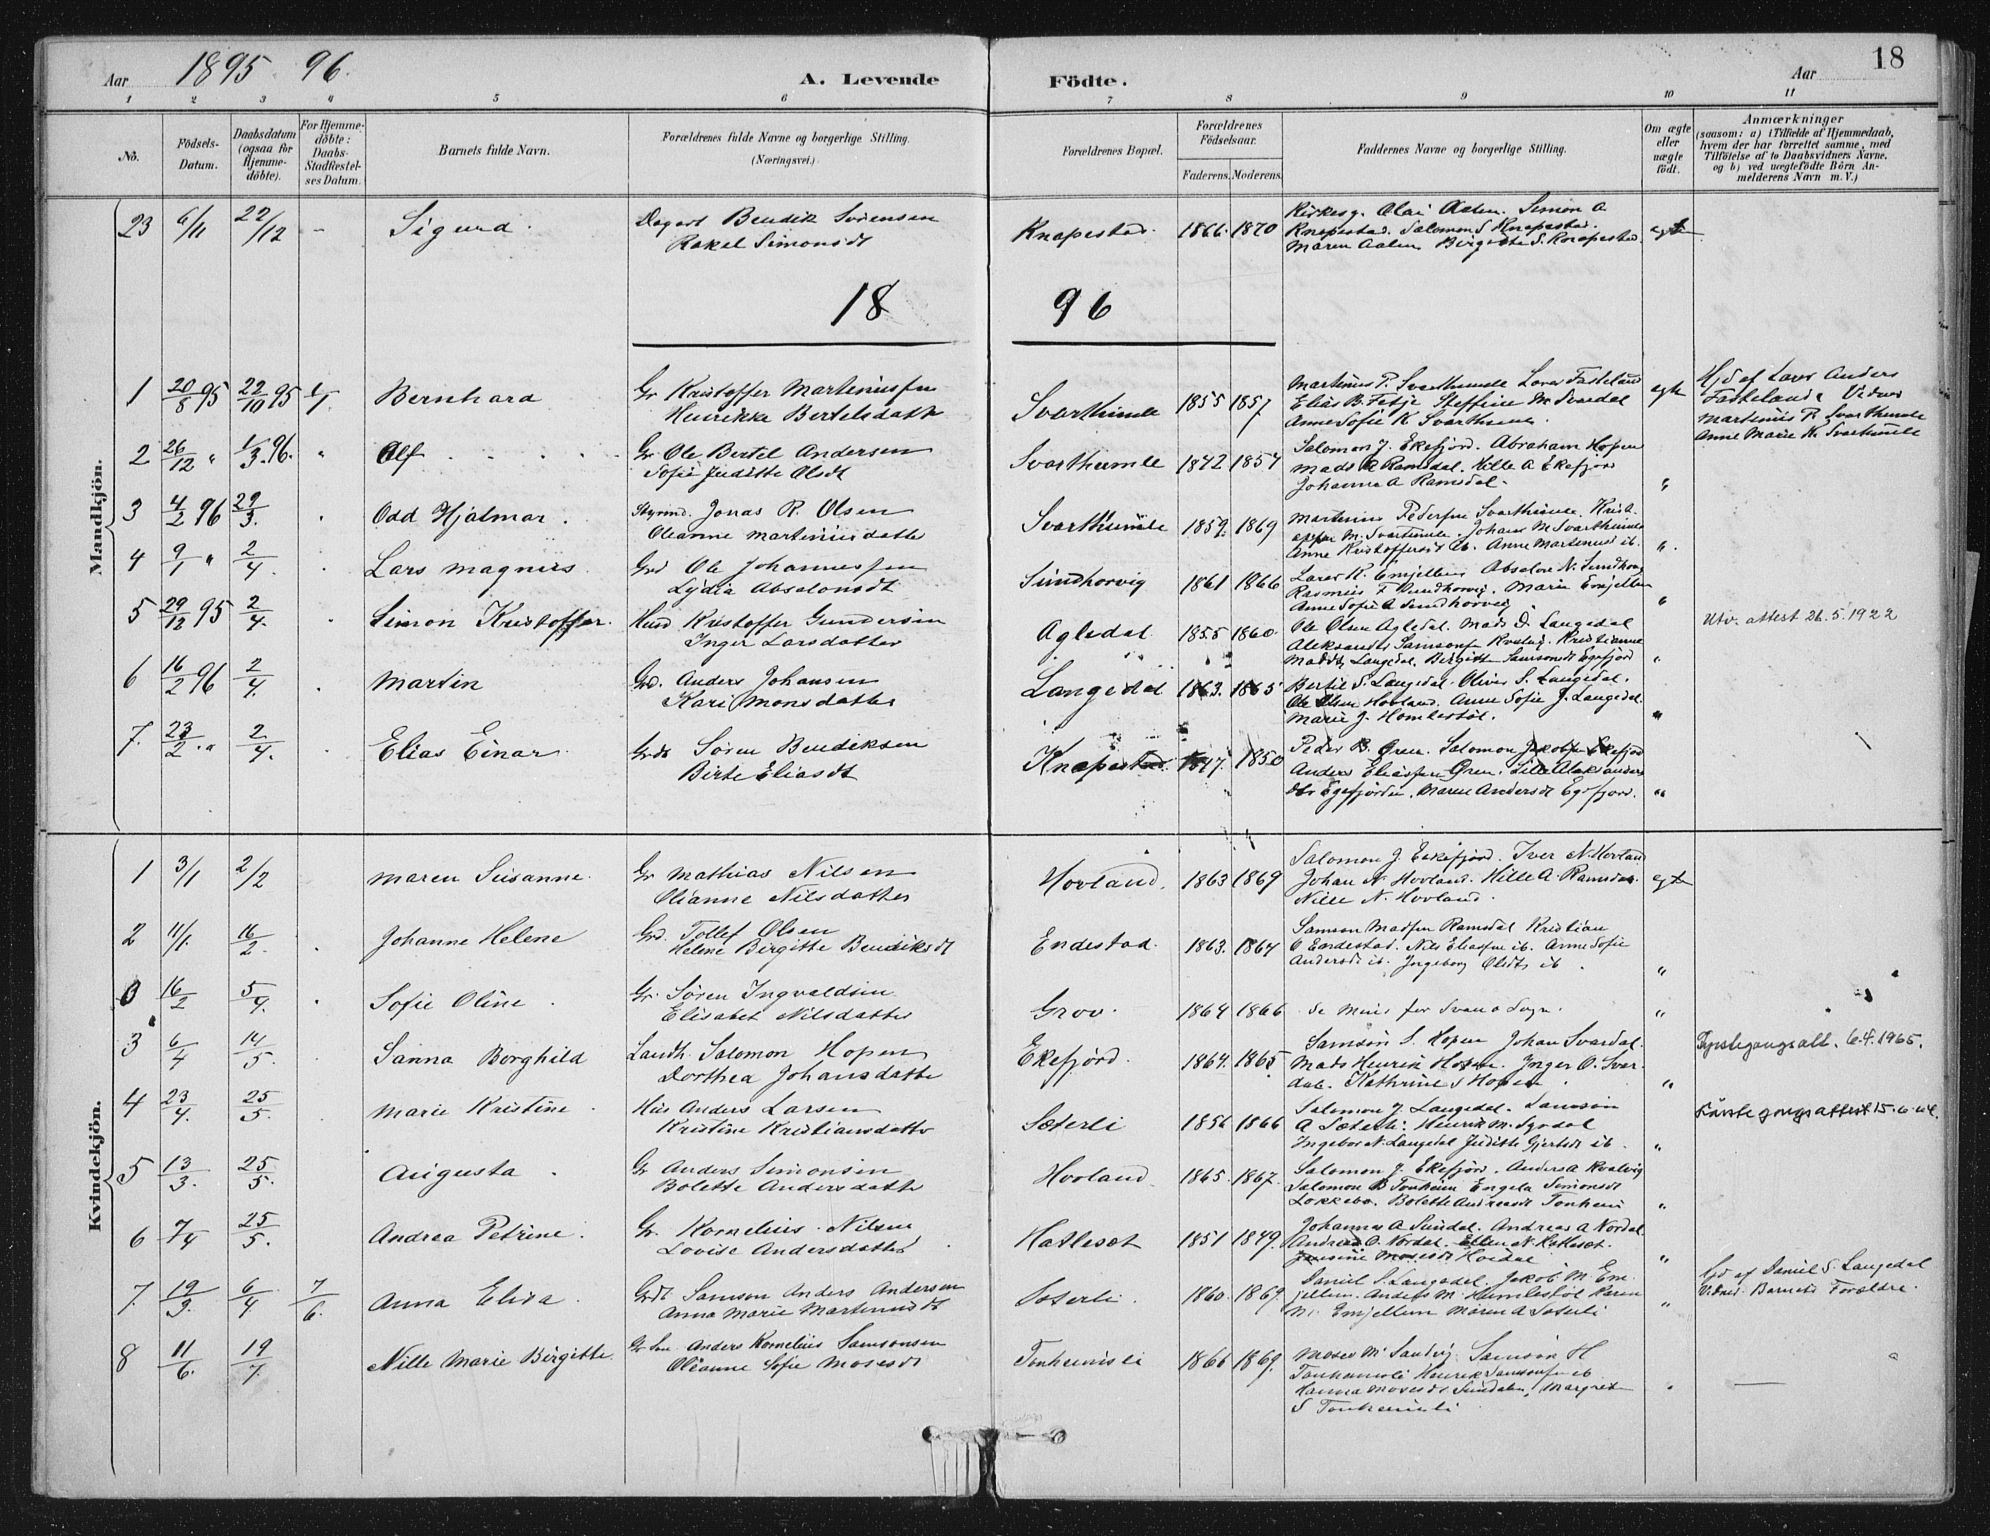 Aar 1895 96.
A. Levende Födte.
Aar
18
1 2 3 4 5 6 7 8 9 10 11
No.
Födsels-Datum.
Daabsdatum (ogsaa for Hjemme-döbte).
For Hjemme-döbte: Daabs-Stadfæstel-ses Datum.
Barnets fulde Navn.
Forældrenes fulde Navne og borgerlige Stilling.
(Næringsvei.)
Forældrenes Bopæl.
Forældrenes Födselsaar.
Faderens. Moderens.
Faddernes Navne og borgerlige Stilling.
Om ægte eller uægte födt.
Anmærkninger
(saasom: a) i Tilfælde af Hjemmedaab,
hvem der har forrettet samme, med
Tilföielse af to Daabsvidners Navne,
og b) ved uægtefödte Börn An-
melderens Navn m. V.)
23 6/11 22/12 - Sigurd. Bendik Sörensen
Rakel Simonsdt
Knapestad. 1866. 1870
Kirkesg. Olai Aalen. Simon A
Knapestad. Salomon S Knapestad.
Maren Aalen Birgitte S. Knapestad.
egte
1896
Mandkjön.
1 20/8 95 22/10 95 Bernhard Gr Kristoffer Martinussen
Henrikke Bertelsdatter
Svarthumle 1855 1857
Martinus P. Svarthumle Lars Fasteland
Elias B. Fetje Steffine M Svardal
Anne Sofie K Svarthumle.
egte
Hjd af Lars Anders
Fasteland. Vidner
Martinus P. Svarthumle
Anne Marie K. Svarthumle
2 26/12 " 1/3.96. " Olf Gr Ole Bertel Andersen
Sofie Juditte Olsdt
Svarthumle 1842 1854
Salomon J. Ekefjord. Abraham Hopen
Mads A Ramsdal. Hille A Ekefjord
Johanne A Ramsdal.
"
3 4/2 96 29/3. Odd Hjalmar. Styrmd. Jonas R. Olsen
Oleanne Martinusdatter
Svarthumle 1859. 1869
Martinus Pedersen Svarthumle. Krist-
offer M. Svarthumle. Johan M Svarthumle
Anne Kristoffersdt ib. Anne Martinusd ib.
"
4 9/1 " 2/4. Lars Magnus. Grd Ole Johannessen
Lydia Absalonsdt
Sundhorvig 1861 1866
Lars R. Emjellen Absalon N. Sundhorvig
Rasmus F Sundhorvig. Marie Emjellen
Anne Sofie A Sundhorvig
"
5 29/12 95 2/4. Simon Kristoffer. Husd Kristoffer Gundersen
Inger Larsdatter
Agledal 1855 1860.
Ole Olsen Agledal. Mads D. Langedal
Aleksander Samsonsen Kvalvig. Kristianne
Madsdt. Langedal. Birgitte Samsonsdt Egefjord
"
Utv. attest 26.5.1922
6 16/2 96 2/4. Martin Grd. Anders Johansen
Kari Monsdatter
Langedal 1863. 1865
Bertil S. Langedal. Oliver S. Langedal.
Ole Olsen Hovland. Anne Sofie J. Langedal.
Marie J. Homlestöl.
"
7. 23/2." 2/4. Elias Einar. Grdr Sören Bendiksen
Birte Eliasdt
Knapestad. 1847. 1850
Peder B. Gren. Salomon Jakobsen Ekefjord
Anders Eliassen Gren. Lille Aleksanders
dtr Egefjorden. Maren Andersdt Egefjord.
"
Kvindekjön.
1 3/1 2/2 Maren Susanne. Gr Mathias Nilsen
Olianne Nilsdatter
Hovland. 1863 1869
Salomon J. Ekefjord. Iver N. Hovland
Johan N. Hovland. Hille A. Ramsdal.
Nille N. Hovland.
egte
2 11/1. 16/2. Johanne Helene Grd. Tollef Olsen
Helene Birgitte Bendiksdt
Endestad. 1863. 1864
Samson Madsen Ramsdal Kristian
O Endestad. Nils Eliassen ib. Anne Sofie
Andersdt ib. Ingeborg Olsdt ib.
"
0 16/2 5/4. Sofie Oline. Gr. Sören Ingvaldsen
Elisabet Nilsdatter
Grov. 1864 1866 Se Min: for Svanø Sogn.
"
3 6/4 14/5. Sanna Borghild Landh. Salomon Hopen
Dorthea Johansdatter
Ekefjord. 1864. 1865
Samson S. Hopen Johan Svardal.
Mads Henrik Hopen. Inger O. Svar-
dal. Kathrine S Hopen.
"
Fyrstegangsatt. 6.4.1965.
4 23/4. 25/5. Marie Kristine. Hus Anders Larsen
Kristine Kristiansdatter
Sæterli 1856 1866
Salomon J. Langedal. Samson
A Sæterli. Henrik M.
Ingebor N. Langedal Judith Gjertsdt ib.
"
Förstegangsattest 15.6.
5 13/3. 25/5. Augusta. Gr Anders Simonsen
Bolette Andersdatter
Hovland. 1865. 1867.
Salomon J. Ekefjord. Anders A Kvalvig
Salomon B Tonheim Engela Simonsdt
Løkkebø. Bolette Andreasdt Tonheim
"
6 7/4 25/5. Andrea Petrine. Gr. Kornelius Nilsen
Lovise Andersdatter
Hatleset 1851 1849.
Johannes A Sundal. Andreas A Nordal
Andreas O. Nordal. Ellen N. Hatleset.
Jensine Mosesdt Hovdal
"
7. 19/3. 6/4 7/6. Anna Elisa. Grdt Samson Anders Andersen
Anna Marie Martinusdt
Sæterli. 1860. 1869.
Daniel S. Langedal. Jakob M. Em-
jellem. Anders M. Humlestöl Karen
M. Emjellem Maren A Sæterli
"
Hjd af Daniel S. Langedal
Vidner Barnets Forældre.
8 11/6. 19/7. Nille Marie Birgitte. Anders Kornelius Samsonsen
Oleanne Sofie Mosesdt
Tonheimsli 1866 1869.
Moses M. Sandvig. Samson H
Tonheimsli Henrik Samsonsen ib
Hanna Mosesdt Sundalen, Margrete
S Tonheimsli